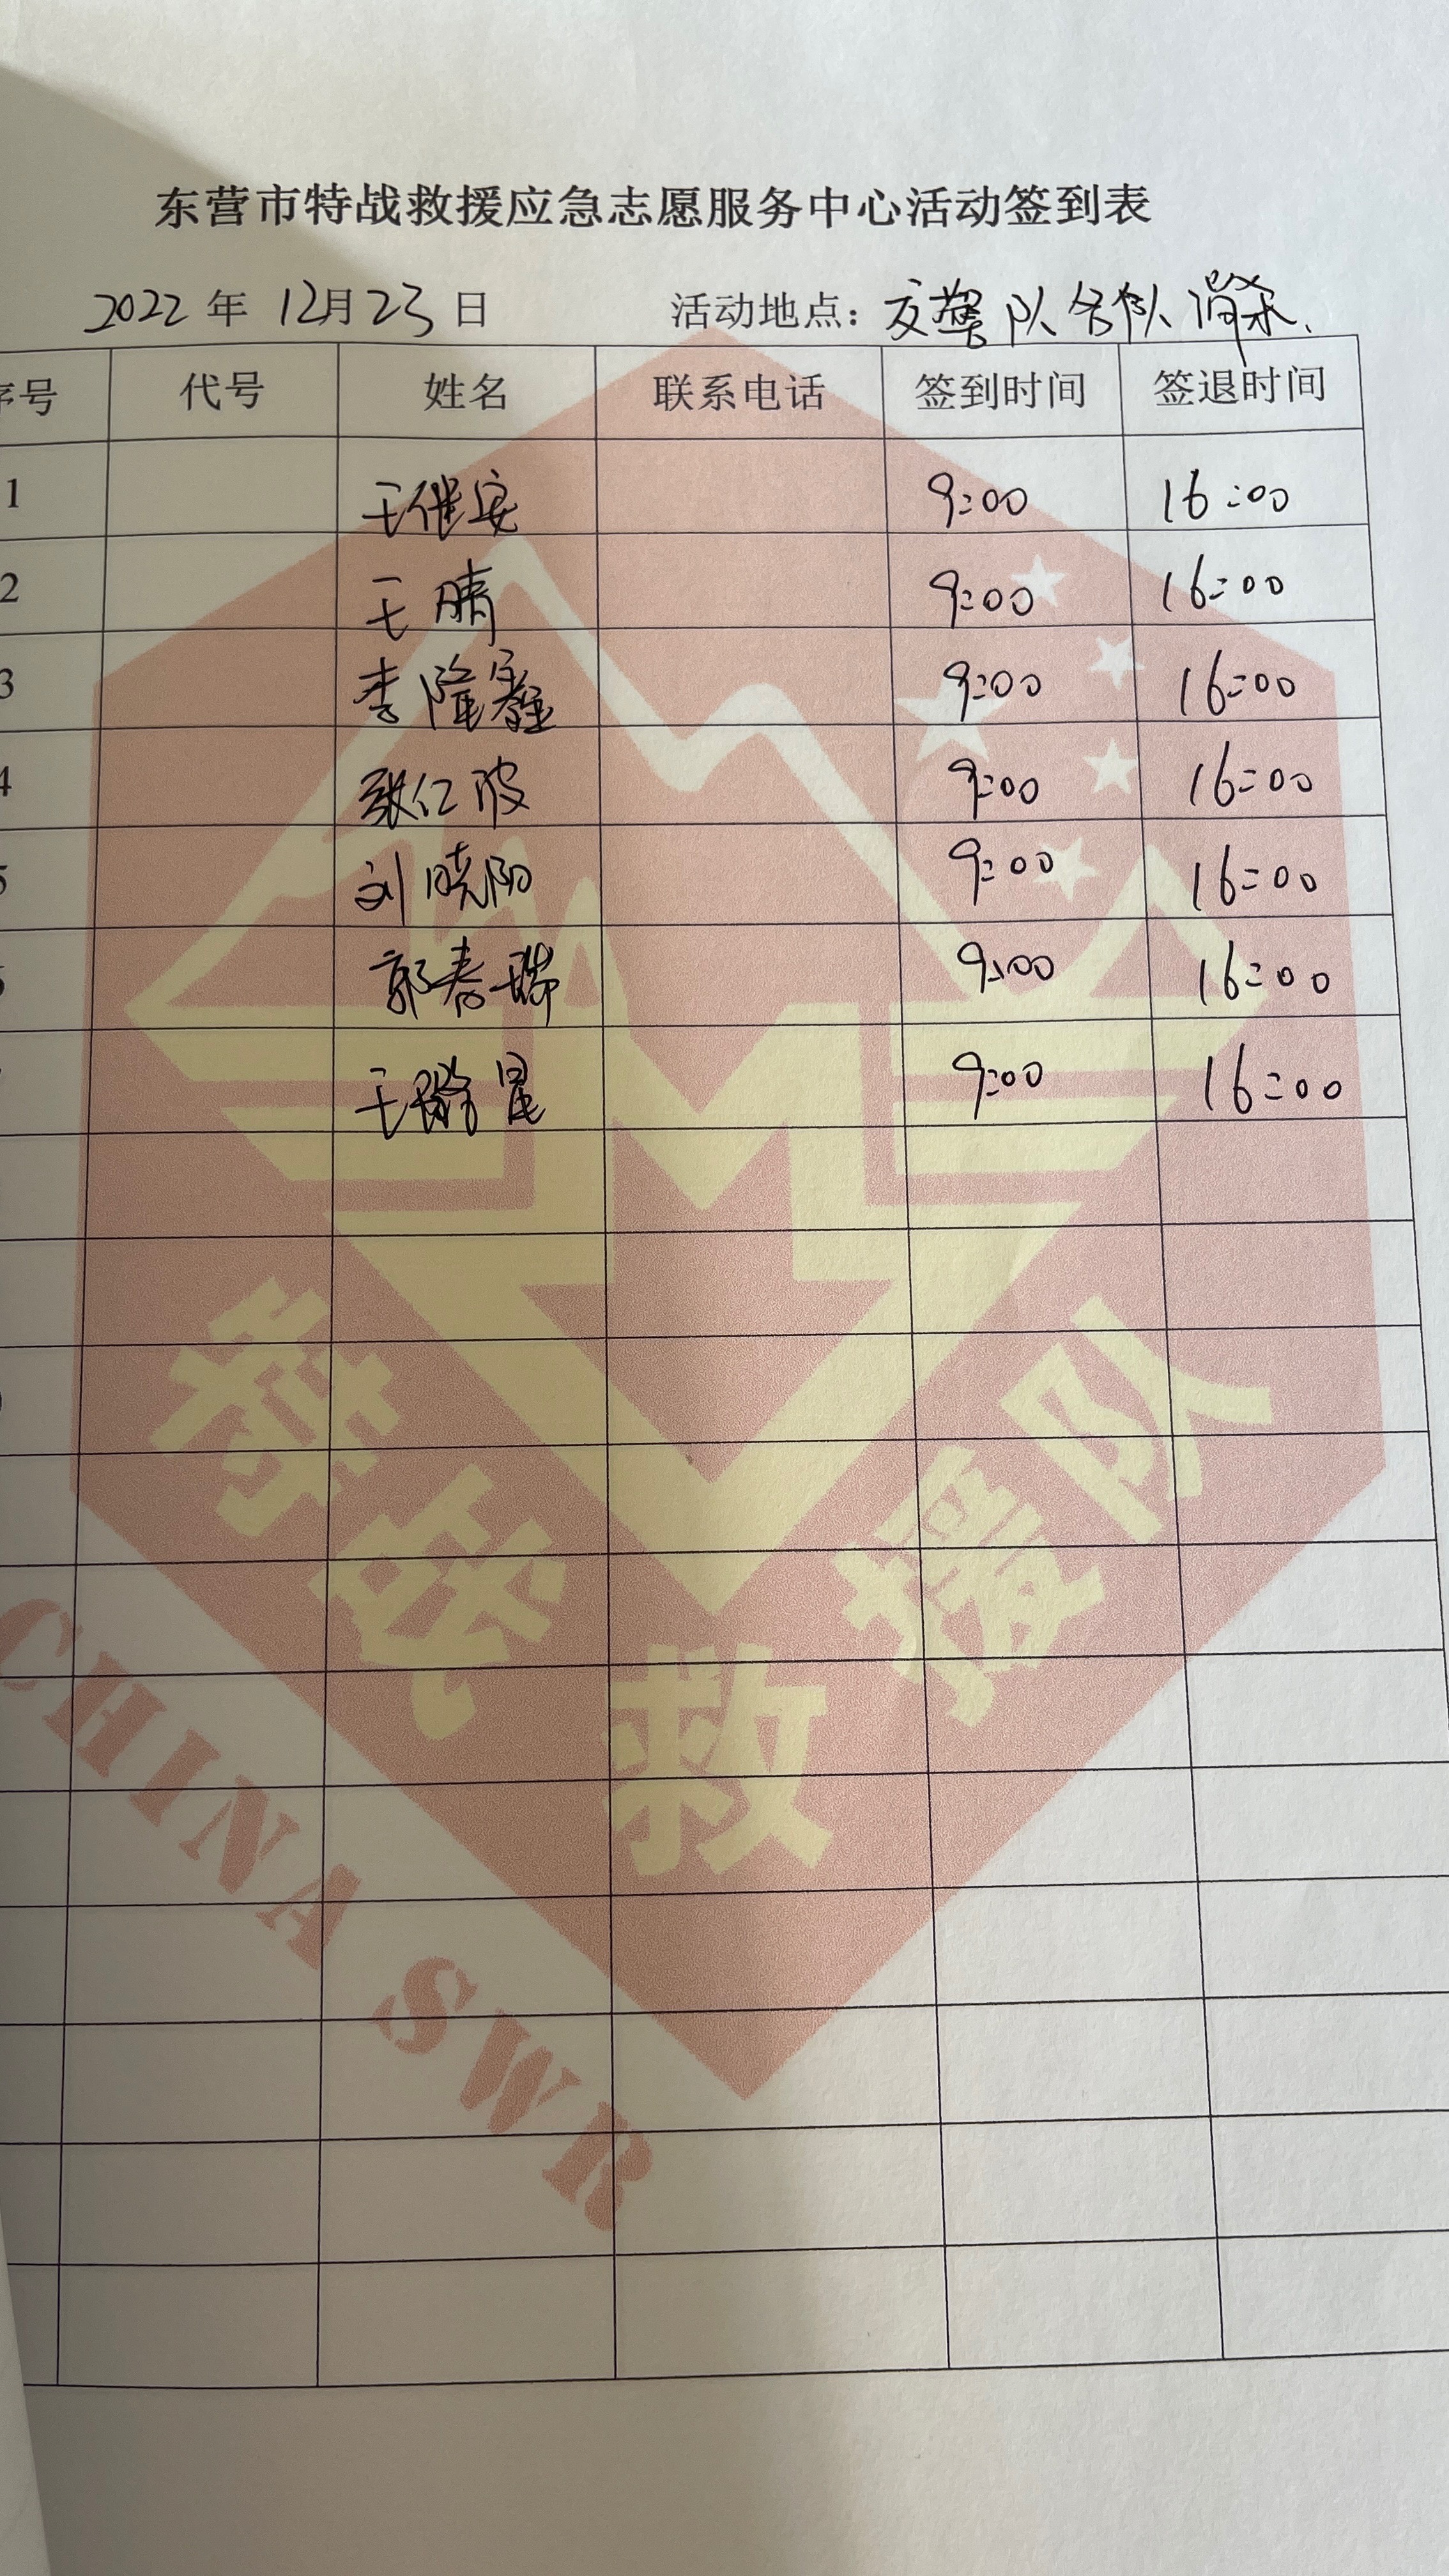 东营市特战救援应急志愿服务中心活动签到表
2022年 12月23日 活动地点：交警队各中队消杀.
序号 代号 姓名 联系电话 签到时间 签退时间
1 王继安 9:00 16:00
2 王晴 9:00 16:00
3 李隆 9:00 16:00
4 张仁波 9:00 16:00
5 刘晓阳 9:00 16:00
郭春瑞 9:00 16:00
王 星 9:00 16:00
特战救援队
CHINA SWR